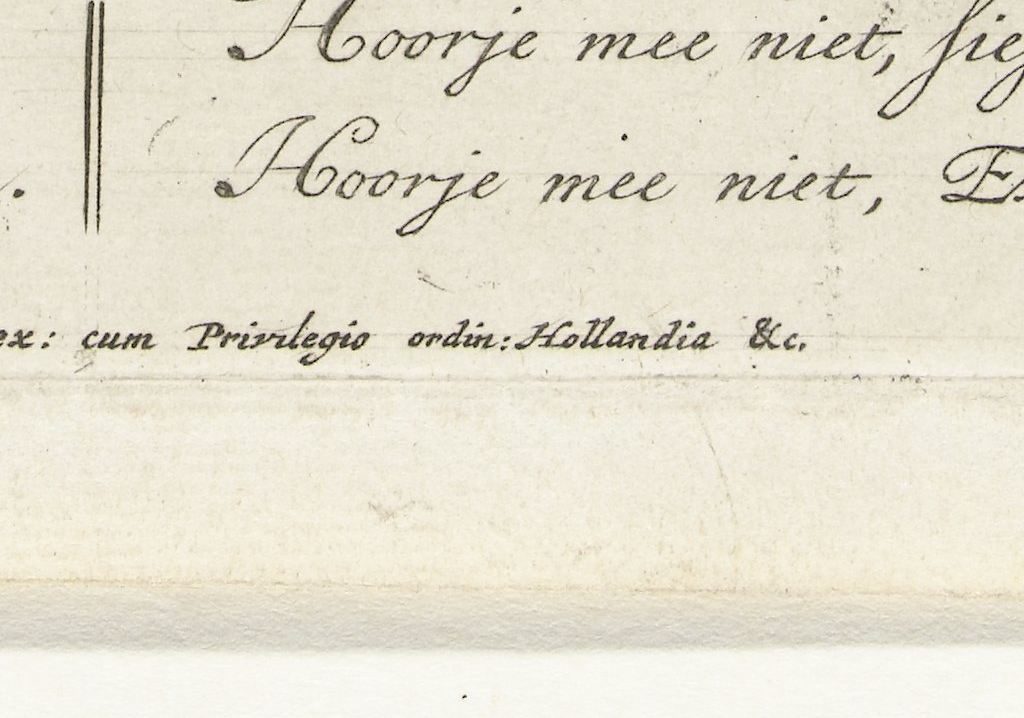 Hoorje mee niet,
Hoorje mee niet,
ex: cum Privilegio ordin: Hollandia &c.